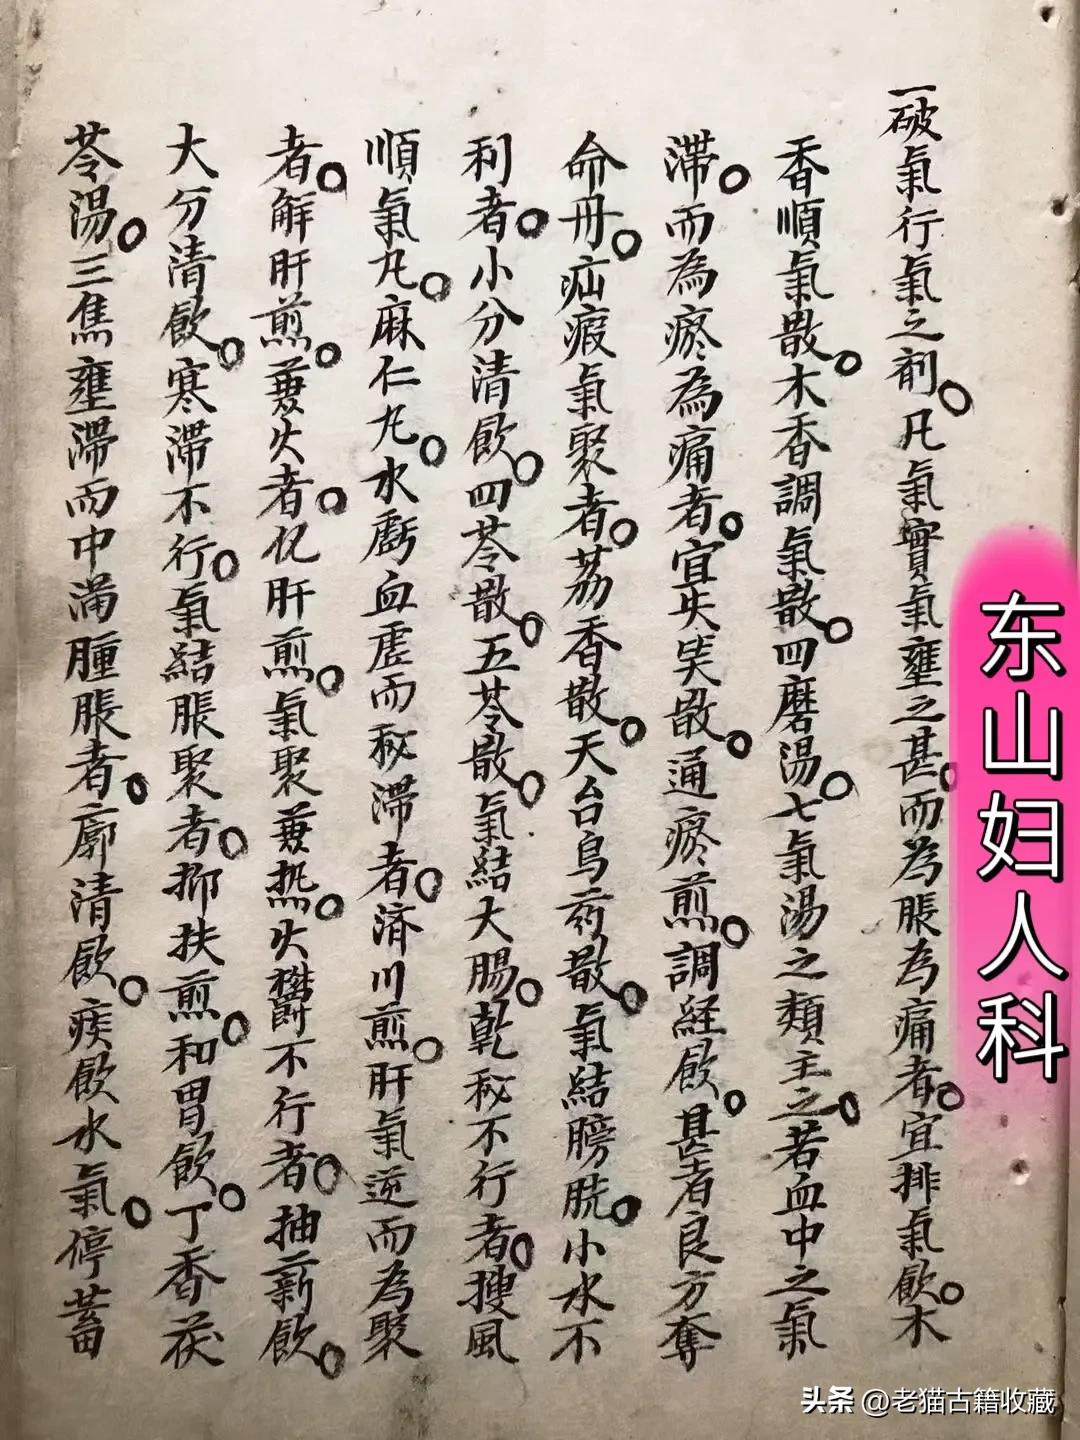 一破氣行氣之剤。凡氣實氣壅之甚。而為脹為痛者。宜排氣飲。木
香順氣散。木香調氣散。四磨湯。七氣湯之類主之。若血中之氣
滞。而為瘀為痛者。宜失笑散。通瘀煎。調経飲。甚者良方奪
命丹。疝瘕氣聚者。荔香散。天台烏葯散。氣結膀胱。小水不
利者。小分清飲。四苓散。五苓散。氣結大腸。乾秘不行者。搜風
順氣丸。麻仁丸。水虧血虛而秘滞者。济川煎。肝氣逆而為聚
者。解肝煎。蒹火者。化肝煎。氣聚蒹热。火欝不行者。抽薪飲。
大分清飲。寒滞不行。氣結脹聚者。抑扶煎。和胃飲。丁香茯
苓湯。三焦壅滞而中滿腫脹者。廓清飲。疾飲水氣。停蓄
东山妇人科
头条 @老猫古籍收藏